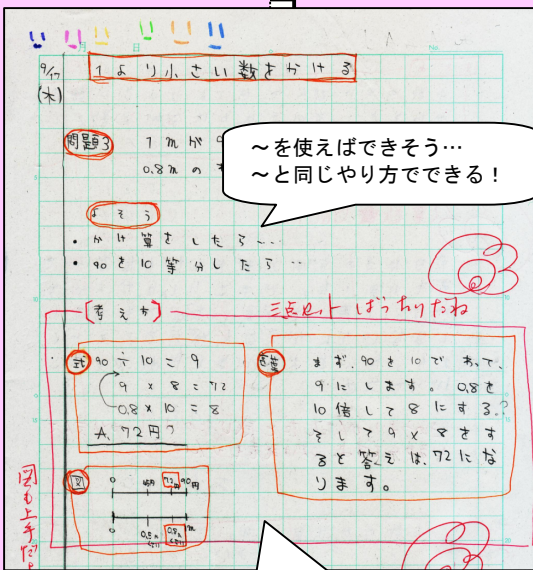 月 日 No.
9/17
(木)
1より小さい数をかける
問題3 1mが9
0.8mの
～を使えばできそう…
～と同じやり方でできる！
よそう
・かけ算をしたら…
・90を10等分したら…
[考え方]
三点セット ばっちりだね
式 90÷10=9
9×8=72
0.8×10=8
A. 72円?
言葉 まず、90を10でわって、
9にします。0.8を
10倍して8にする。?
そして9×8をす
ると答えは、72にな
ります。
図
0 45円 72円 90円
0 0.5m 0.8m m
図も上手だ